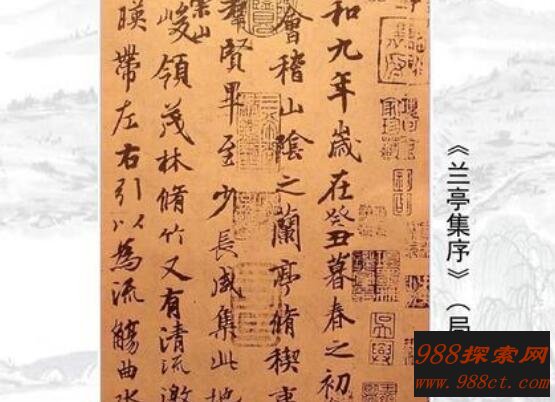 和九年歲在癸丑暮春之初
會稽山陰之蘭亭脩禊事
羣賢畢至少長咸集此地
崇山
峻領茂林脩竹又有清流激
暎帶左右引以為流觴曲水
《兰亭集序》（局
988探索网
www.988ct.com